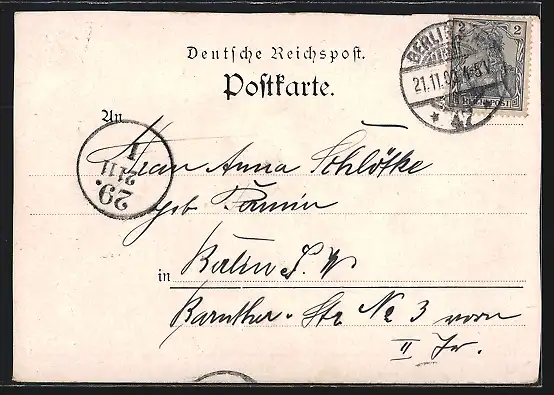 Deutsche Reichspost.
Postkarte.
BERLIN
21.11.00. 4-5 N.
* 47
2 2
REICHSPOST
An
29.
21 11
Frau Anna Schlötke
geb
in Berlin S. W
Baruther-Str No 3 vorn
II Tr.